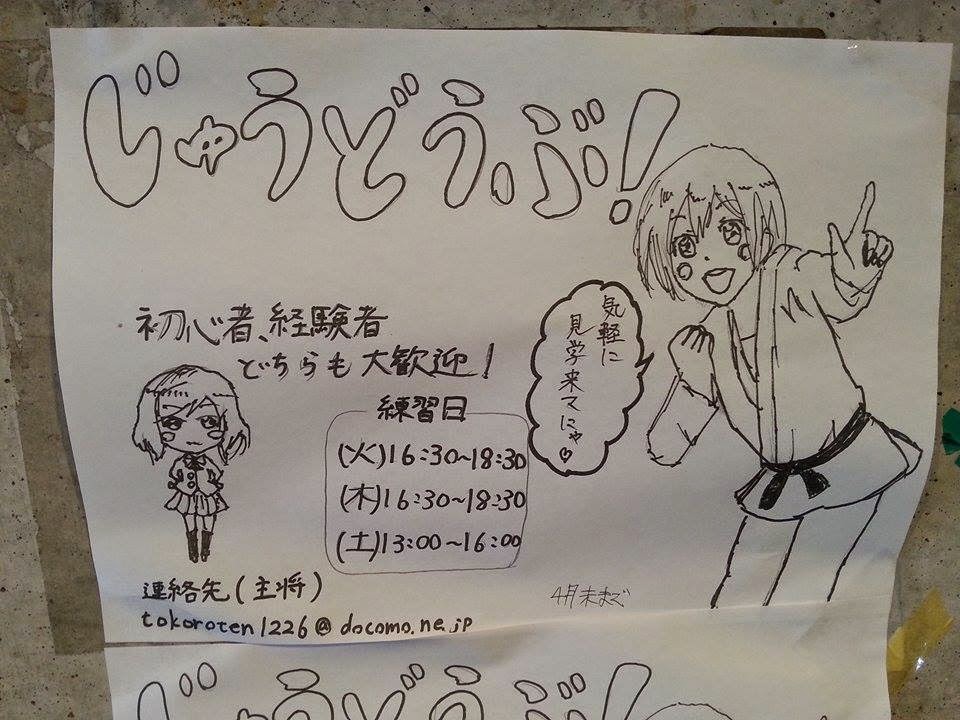 じゅうどうぶ!
初心者、経験者
どちらも大歓迎!
気軽に
見学来てにゃ♡
練習日
(火)16:30~18:30
(木)16:30~18:30
(土)13:00~16:00
4月末まで
連絡先(主将)
tokoroten1226@docomo.ne.jp
じゅうどうぶ!